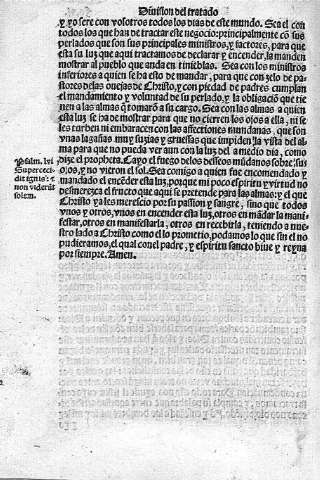 Diuision del tratado
y yo sere con vosotros todos los dias de este mundo. Sea el con
todos los que han de tractar este negocio: principalmente cõ sus
perlados que son sus principales ministros, y factores, para que
esta su luz que aqui tractamos de declarar y encender, la manden
mostrar al pueblo que anda en tinieblas. Sea con los ministros
inferiores a quien se ha esto de mandar, para que con zelo de pa-
stores delas ouejas de Christo, y con piedad de padres cumplan
el mandamiento y voluntad de su perlado, y la obligaciõ que tie
nen a las almas q̃ tomarõ a su cargo. Sea con las almas a quien
esta luz se ha de mostrar para que no cierren los ojos a ella, ni se
les turben ni embaracen con las affectiones mundanas, que son
vnas lagañas muy suzias y gruessas que impiden la vista del al-
ma para que no pueda ver aun con la luz del amedio dia, como
dize el propheta. Cayo el fuego delos desseos mũdanos sobre sus
ojos, y no vieron el sol. Sea comigo a quien fue encomendado y
mandado el encẽder esta luz, porque mi poco espiritu y virtud no
desmerezca el fructo que aqui se pretende para las almas: y el que
Christo ya les merescio por su passion y sangre, sino que todos
vnos y otros, vnos en encender esta luz, otros en mãdar la mani-
festar, otros en manifestarla, otros en recebirla, teniendo a nue-
stro lado a Christo como el lo prometio, podamos lo que sin el no
pudieramos, el qual con el padre, y espiritu sancto biue y reyna
por siempre. Amen.
Psalm. lvij
Supercecĩ
dit ignis: ⁊
non viderũt
solem.